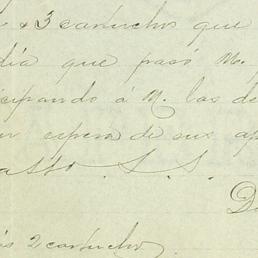 3 cartuchos que
día que pasó M.
cipando á M. las de
espera de sus ap
S. S.
D
2 cartuchos